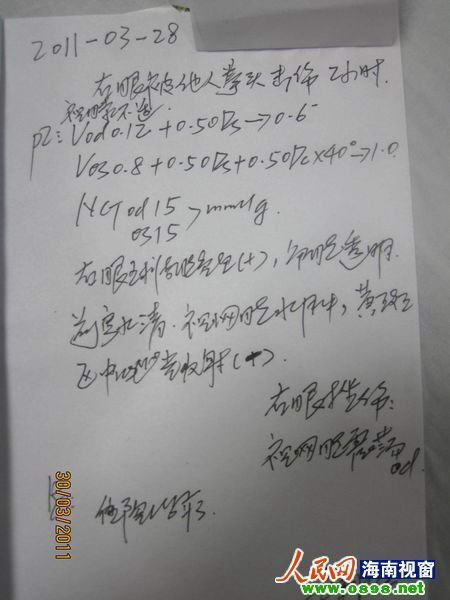 2011-03-28
右眼被他人拳头击伤2小时.
视物不
PE: Vod 0.12 +0.50Ds→0.6
Vos 0.8 +0.50Ds+0.50Dc×40°→1.0
NCT od 15 > mmHg.
os 15
右眼 (+), 角膜透明.
前房水清. 视网膜水肿, 黄斑
区中心凹光反射(+).
右眼挫伤:
视网膜震荡 od.
30/03/2011
人民网 海南视窗
www.0898.net